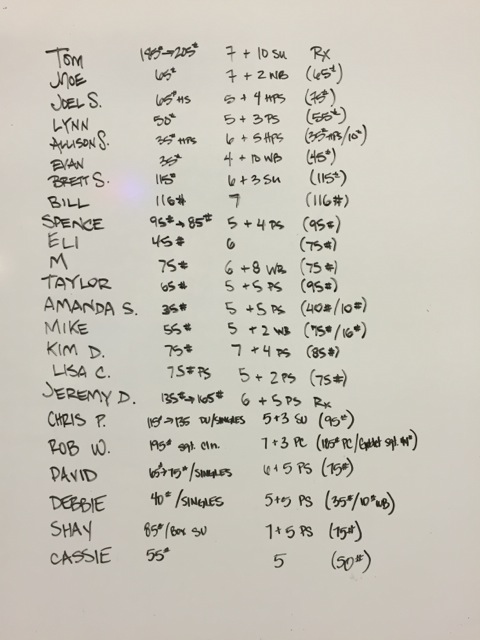 TOM 185#→205# 7 + 10 SU Rx
MOE 65# 7 + 2 WB (65#)
JOEL S. 65# HS 5 + 4 HPS (75#)
LYNN 50# 5 + 3 PS (55#)
ALLISON S. 35# HPS 6 + 5 HPS (35# HPS/10#)
EVAN 35# 4 + 10 WB (45#)
BRETT S. 115# 6 + 3 SU (115#)
BILL 116# 7 (116#)
SPENCE 95#→85# 5 + 4 PS (95#)
ELI 45# 6 (75#)
M 75# 6 + 8 WB (75#)
TAYLOR 65# 5 + 5 PS (95#)
AMANDA S. 35# 5 + 5 PS (40#/10#)
MIKE 55# 5 + 2 WB (75#/16#)
KIM D. 75# 7 + 4 PS (85#)
LISA C. 75# PS 5 + 2 PS (75#)
JEREMY D. 135#→165# 6 + 5 PS Rx
CHRIS P. 115#→135 DU/SINGLES 5+3 SU (95#)
ROB W. 195# sql. cln. 7+3 PC (185# PC/Goblet sql.
DAVID 65#→75#/SINGLES 6+5 PS (75#)
DEBBIE 40#/SINGLES 5+5 PS (35#/10#WB)
SHAY 85#/BOX SU 7+5 PS (75#)
CASSIE 55# 5 (50#)